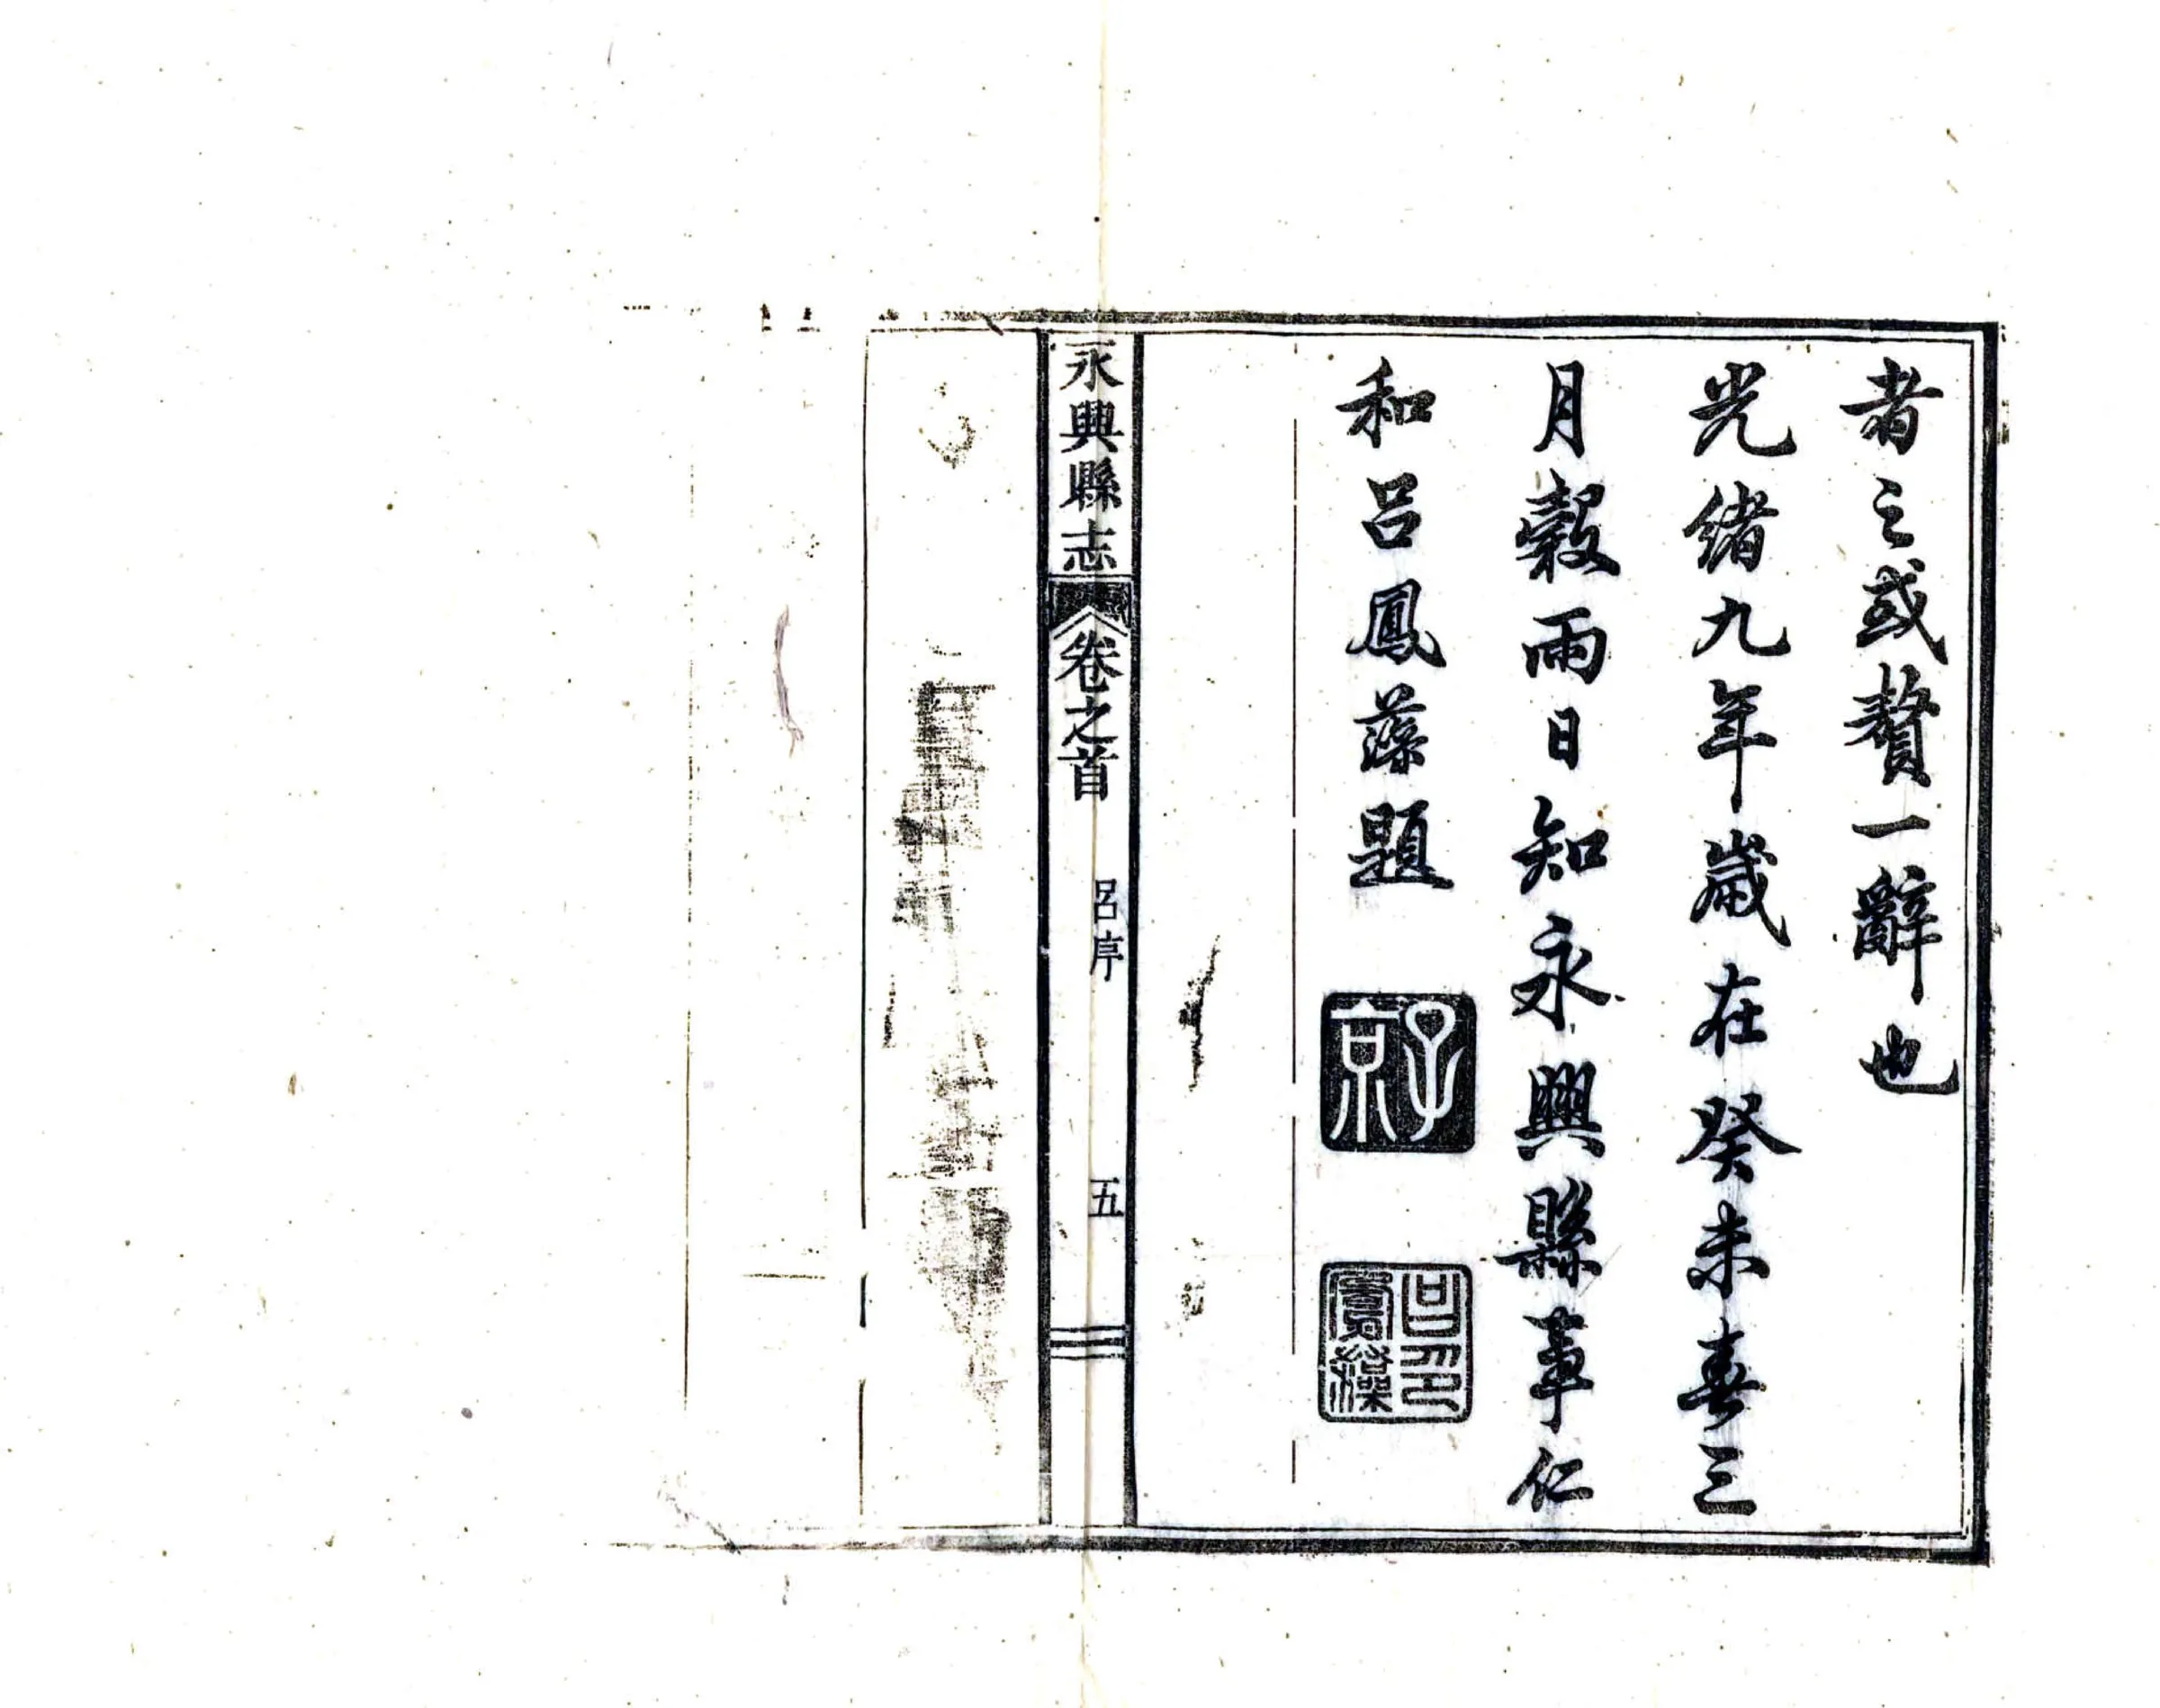 者之或贅一辭也
光緒九年歲在癸未春三
月穀雨日知永興縣事仁
和呂鳳藻題
子京
呂印
永興縣志
卷之首
呂序
五